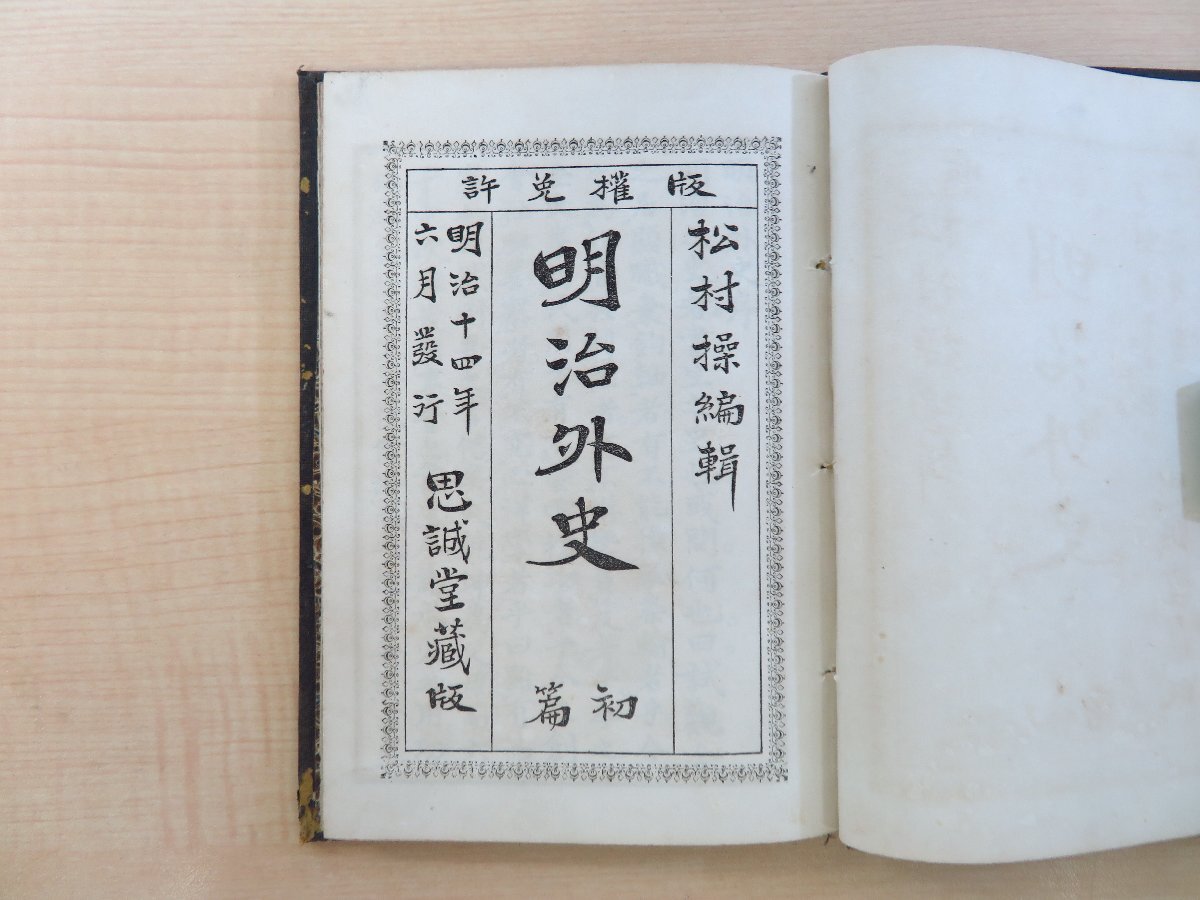 版權免許
松村操編輯
明治外史
初篇
明治十四年
六月發行
思誠堂藏版